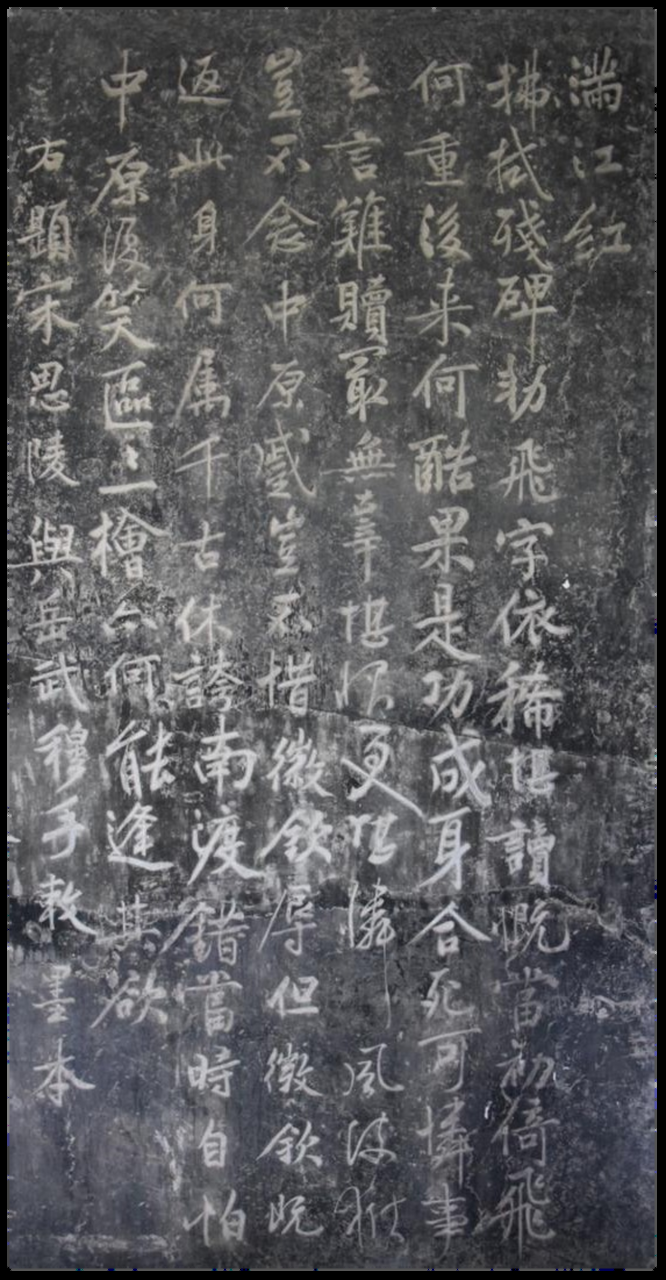 滿江紅
拂拭殘碑勅飛字依稀堪讀慨當初倚飛
何重後来何酷果是功成身合死可憐事
去言難贖最無辜堪恨更堪憐風波獄
豈不念中原蹙豈不惜徽欽辱但徽欽既
返此身何属千古休誇南渡錯當時自怕
中原復笑區〻一檜亦何能逢其欲
右題宋思陵與岳武穆手敕墨本